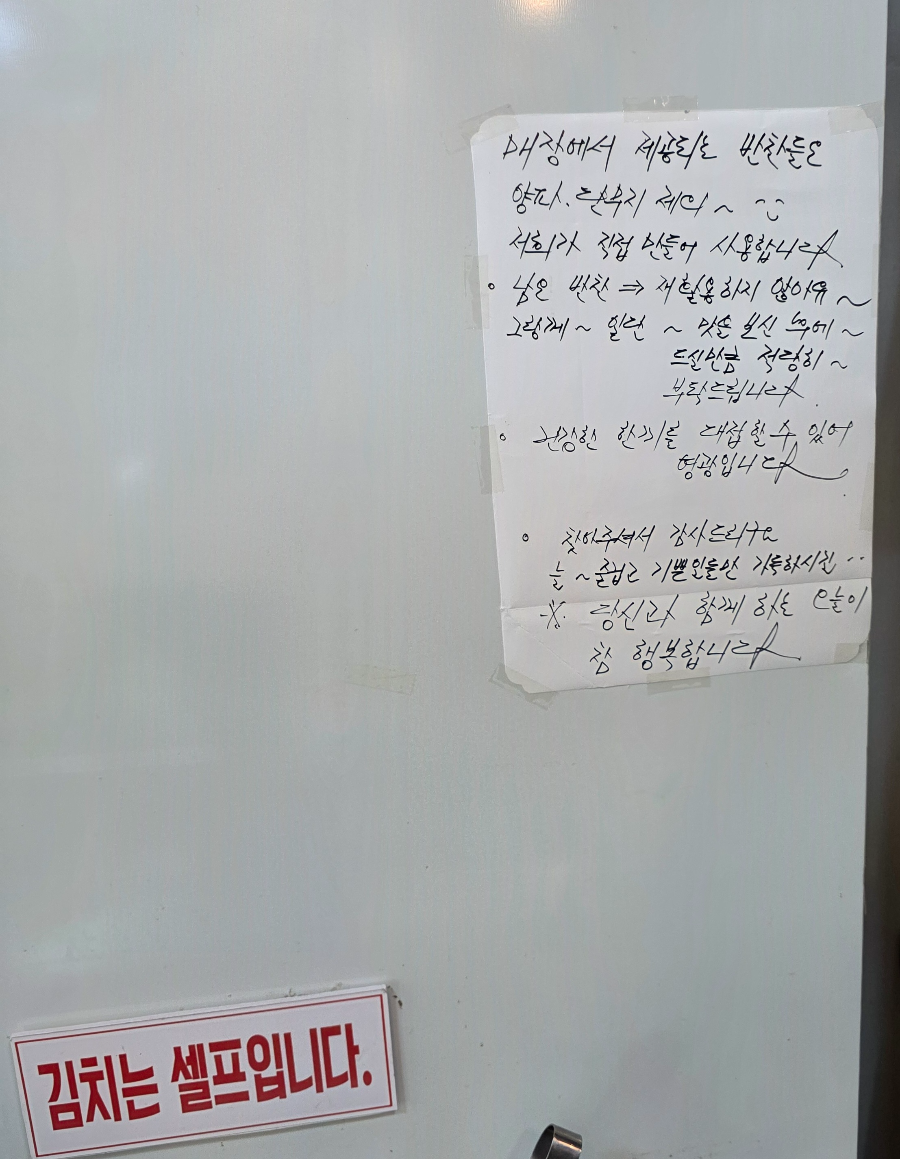 매장에서 제공되는 반찬들은
양파.단무지 제외~
저희가 직접 만들어 사용합니다
· 남은 반찬 ⇒ 재활용하지 않아유~
그렇게~ 일단 ~ 맛을 보신 후에~
드실만큼 적당히~
부탁드립니다.
· 건강한 한끼를 대접할 수 있어
영광입니다.
· 찾아주셔서 감사드리구요
늘~즐겁고 기쁜일들만 가득하시길..
※ 당신과 함께 하는 오늘이
참 행복합니다
김치는 셀프입니다.